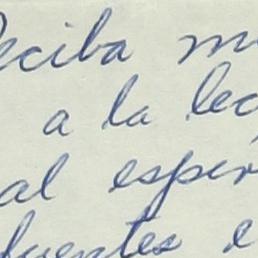 Reciba m
a la lec
al espír
fuentes e